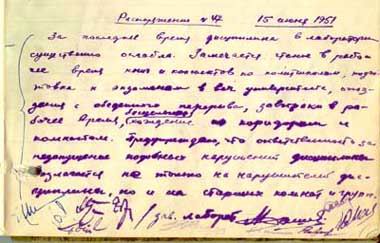 Распоряжение № 47 15 июня 1951
За последнее время дисциплина в лаборатории
существенно ослабла. Замечается чтение в рабо-
чее время книг и конспектов по политическ., подго-
товка к экзаменам в веч. университете, опоз-
дания с обеденного перерыва, завтраки в ра-
бочее время, бесцельное хождение по коридорам и
комнатам. Предупреждаю, что ответственность за
недопущение подобного нарушения дисциплины
возлагается не только на нарушителей дис-
циплины, но и на старших комнат и групп.
зав. лаборат.